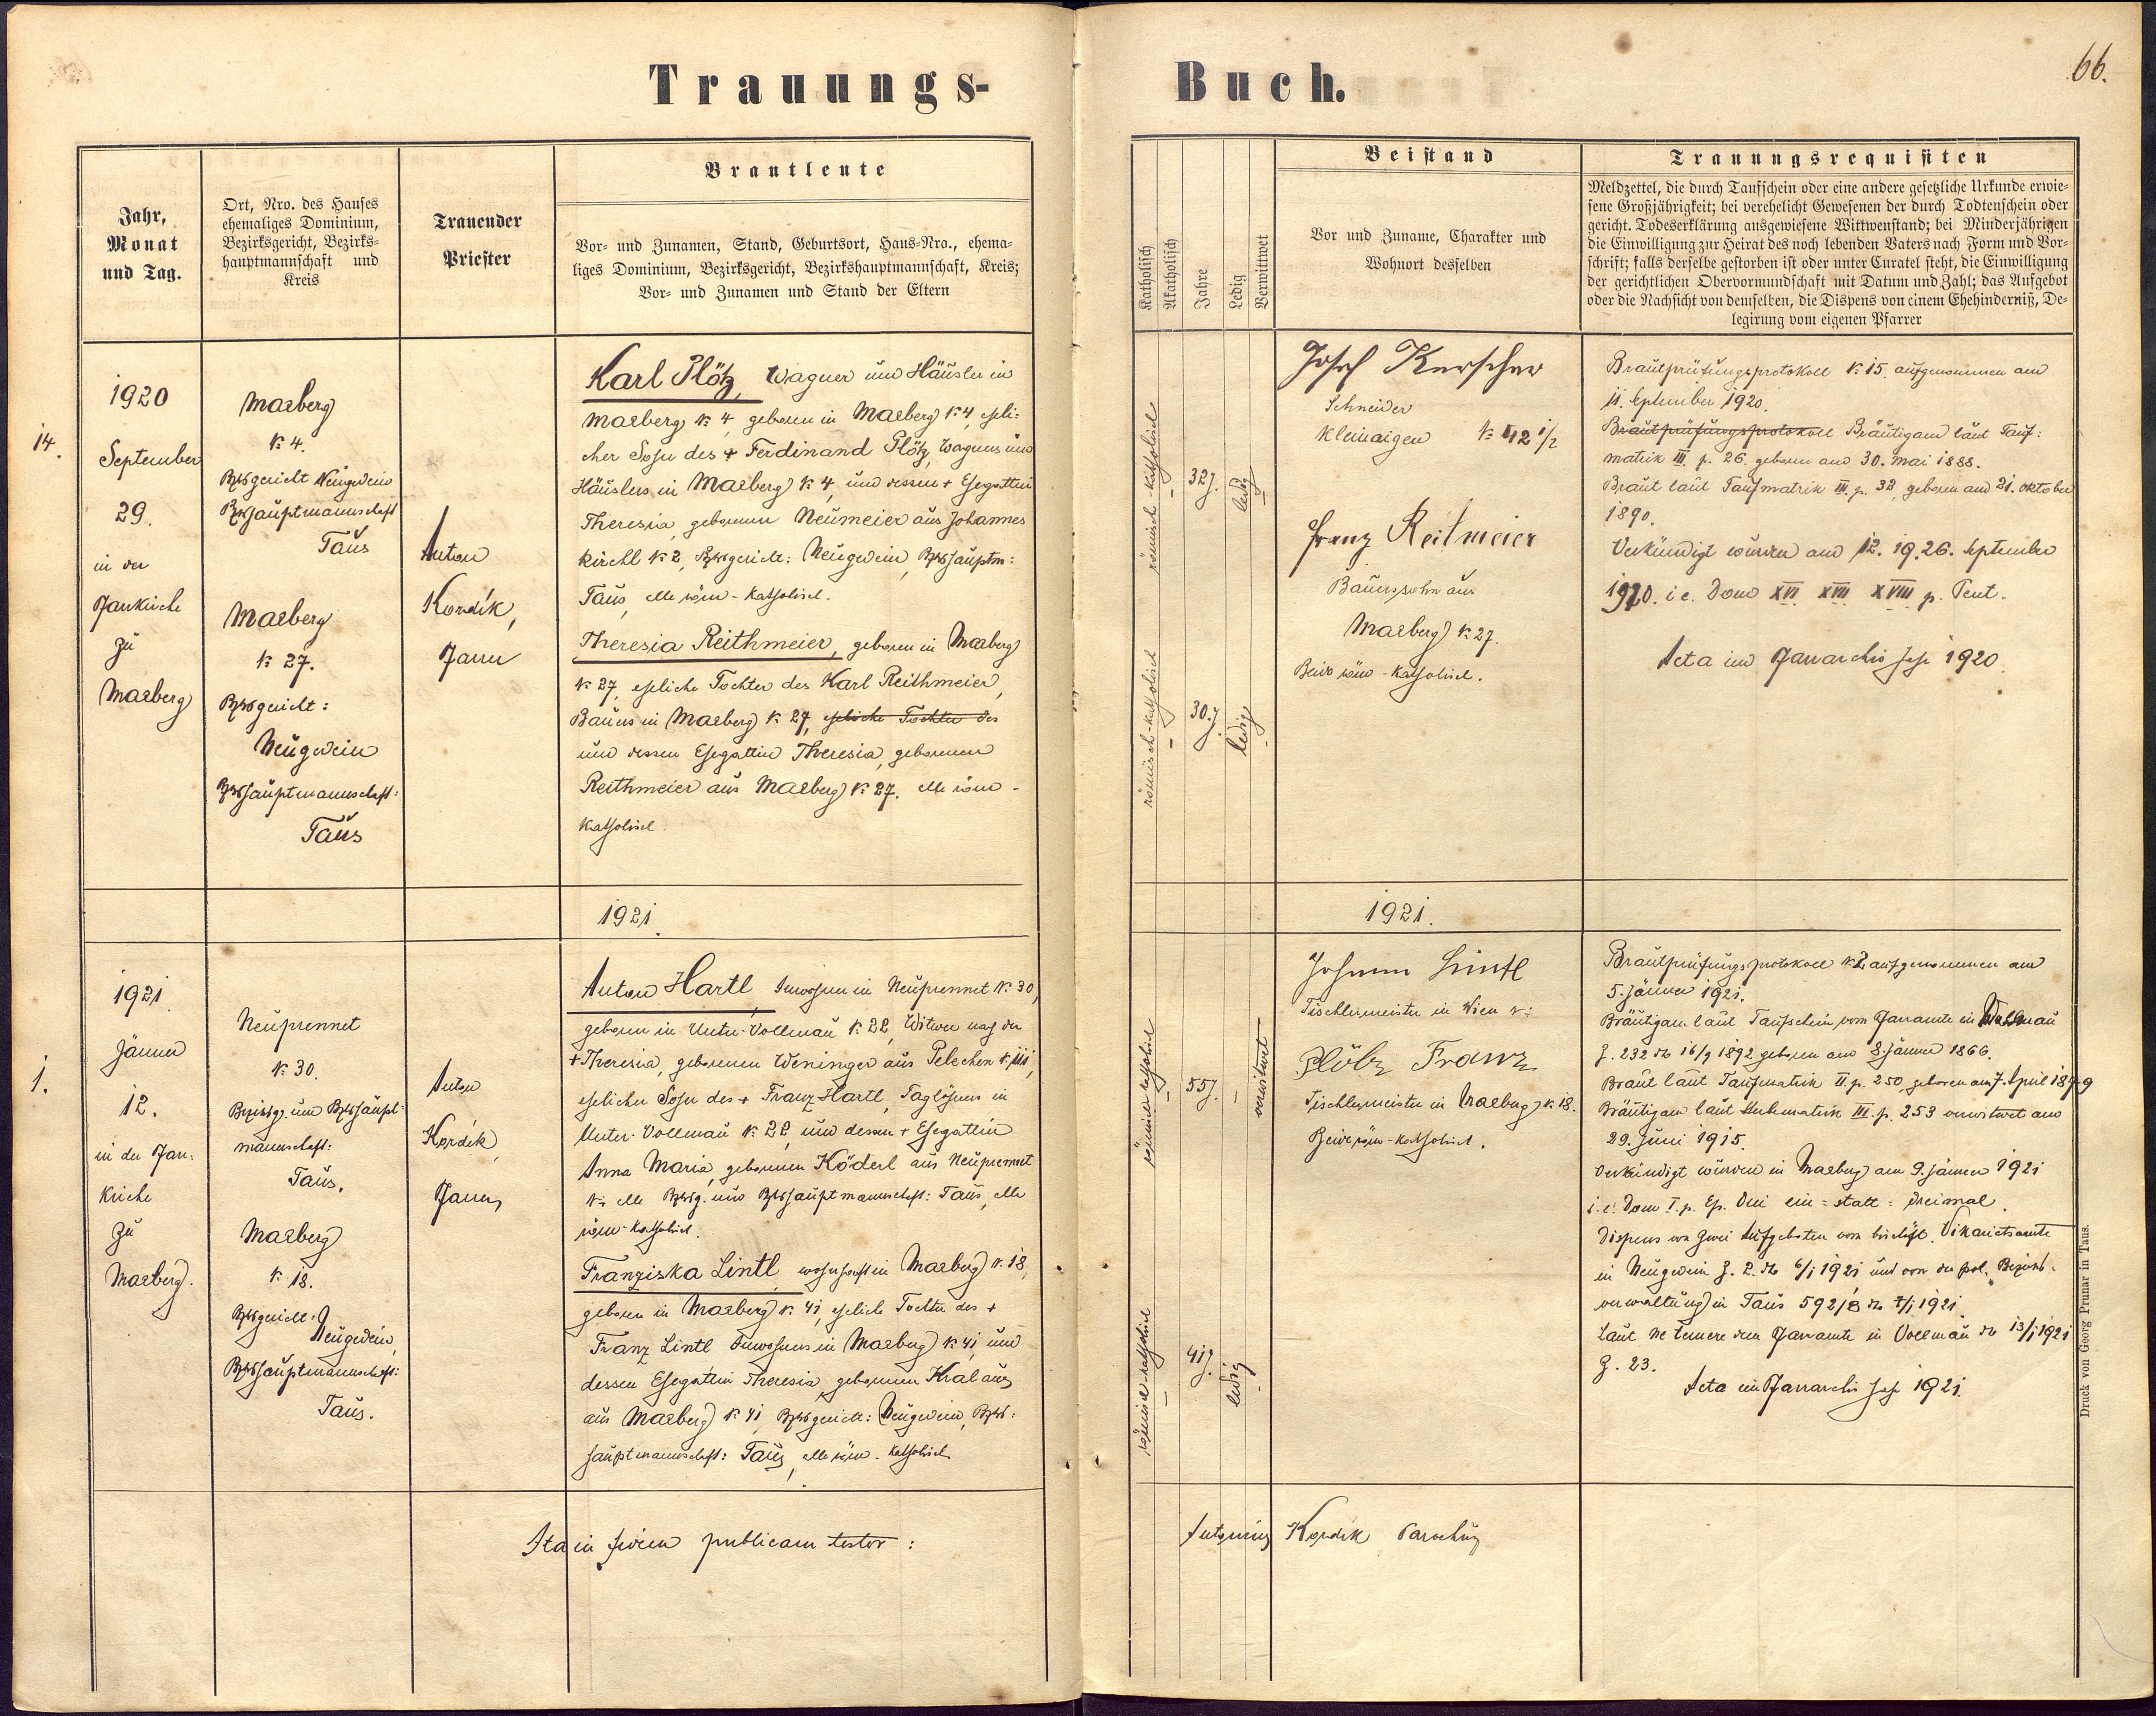 Trauungs-
Buch.
66.
Jahr,
Monat
und Tag.
Ort, Nro. des Hauses
ehemaliges Dominium,
Bezirksgericht, Bezirks-
hauptmannschaft und
Kreis
Trauender
Priester
Brautleute
Vor- und Zunamen, Stand, Geburtsort, Haus-Nro., ehema-
liges Dominium, Bezirksgericht, Bezirkshauptmannschaft, Kreis;
Vor- und Zunamen und Stand der Eltern
Katholisch
Akatholisch
Jahre
Ledig
Verwittwet
Beistand
Vor und Zuname, Charakter und
Wohnort desselben
Trauungsrequisiten
Meldzettel, die durch Taufschein oder eine andere gesetzliche Urkunde erwie-
sene Großjährigkeit; bei verehelicht Gewesenen der durch Todtenschein oder
gericht. Todeserklärung ausgewiesene Wittwenstand; bei Minderjährigen
die Einwilligung zur Heirat des noch lebenden Vaters nach Form und Vor-
schrift; falls derselbe gestorben ist oder unter Curatel steht, die Einwilligung
der gerichtlichen Obervormundschaft mit Datum und Zahl; das Aufgebot
oder die Nachsicht von demselben, die Dispens von einem Ehehinderniß, De-
legirung vom eigenen Pfarrer
14.
1920
September
29.
in der
Pfarrkirche
zu
Maxberg
Maxberg
N: 4.
Bzksgericht Neugedein
Bzkshauptmannschaft
Taus
Maxberg
N: 27.
Bzksgericht:
Neugedein
Bzkshauptmannschaft:
Taus
Anton
Kordík,
Pfarrer
Karl Plötz, Wagner und Häusler in
Maxberg N: 4, geboren in Maxberg N: 4, eheli-
cher Sohn des + Ferdinand Plötz, Wagners und
Häuslers in Maxberg N: 4, und dessen + Ehegattin
Theresia, geborenen Neumeier aus Johannes
kirchl N: 2, Bzksgericht: Neugedein, Bzkshauptm:
Taus, alle röm-katholisch.
Theresia Reithmeier, geboren in Maxberg
N: 27, eheliche Tochter des Karl Reithmeier,
Bauers in Maxberg N: 27, eheliche Tochter des
und dessen Ehegattin Theresia, geborenen
Reithmeier aus Maxberg N: 27. alle röm-
katholisch.
römisch-katholisch
32 J.
ledig
römisch-katholisch
30. J.
ledig
Josef Kerscher
Schneider
Kleinaigen N: 42 1/2
Franz Reitmeier
Bauerssohn aus
Maxberg N: 27.
Beide röm-katholisch.
Brautprüfungsprotokoll N: 15. aufgenommen am
11. September 1920.
Brautprüfungsprotokoll Bräutigam laut Tauf-
matrik III. p. 26. geboren am 30. Mai 1888.
Braut laut Taufmatrik III. p. 32, geboren am 21. Oktober
1890.
Verkündigt wurden am 12. 19. 26. September
1920. i e. Dom XVI XVII XVIII p. Pent.
Acta im Pfarrarchiv Jahr 1920
1921.
1921.
1.
1921
Jänner
12.
in der Pfarr-
kirche
zu
Maxberg.
Neuprennet
N: 30.
Bezirksg. und Bzkshaupt-
mannschaft:
Taus,
Maxberg
N: 18.
Bzksgericht:
Neugedein,
Bzkshauptmannschaft:
Taus.
Anton
Kordík,
Pfarrer
Anton Hartl, Inwohner in Neuprennet N: 30,
geboren in Unter-Vollmau N: 22, Witwer nach der
+ Theresia, geborenen Weninger aus Pelechen N: 111,
ehelicher Sohn des + Franz Hartl, Taglöhners in
Unter-Vollmau N: 22, und dessen + Ehegattin
Anna Maria, geborenen Köderl aus Neuprennet
N: alle Bzksg. und Bzkshauptmannschaft: Taus, alle
röm-katholisch.
Franziska Lintl, wohnhaft in Maxberg N: 18,
geboren in Maxberg N: 41, eheliche Tochter des +
Franz Lintl Inwohners in Maxberg N: 41, und
dessen Ehegattin Theresia, geborenen Kral aus
aus Maxberg N: 41, Bzksgericht: Neugedein, Bzks-
hauptmannschaft: Taus, alle röm-katholisch.
römisch-katholisch
55 J.
verwitwet
römisch-katholisch
41 J.
ledig
Johann Lintl
Tischlermeister in Wien N:
Plötz Franz
Tischlermeister in Maxberg N: 18.
Beide röm-katholisch.
Brautprüfungsprotokoll N: 2 aufgenommen am
5. Jänner 1921.
Bräutigam laut Taufschein vom Pfarramte in Vollmau
Z. 232 do 16/9 1892 geboren am 8. Jänner 1866.
Braut laut Taufmatrik II. p. 250, geboren am 7. April 1879
Bräutigam laut Sterbematrik III. p. 253 verwitwet am
29. Juni 1915.
Verkündigt wurden in Maxberg am 9. Jänner 1921
i. e. Dom I. p. Ep. Dni ein- statt- dreimal.
Dispens von zwei Aufgeboten vom bischöfl. Vikariatsamte
in Neugedein Z. 2. do 6/1 1921 und von der pol. Bezirks-
verwaltung in Taus 592/B do 7/1 1921.
Laut Ne temere dem Pfarramte in Vollmau do 13/1 1921
Z. 23.
Acta im Pfarrarchiv Jahr 1921.
Ita in fidem publicam testor:
Antonius Kordík Parochus
Druck von Georg Prunar in Taus.